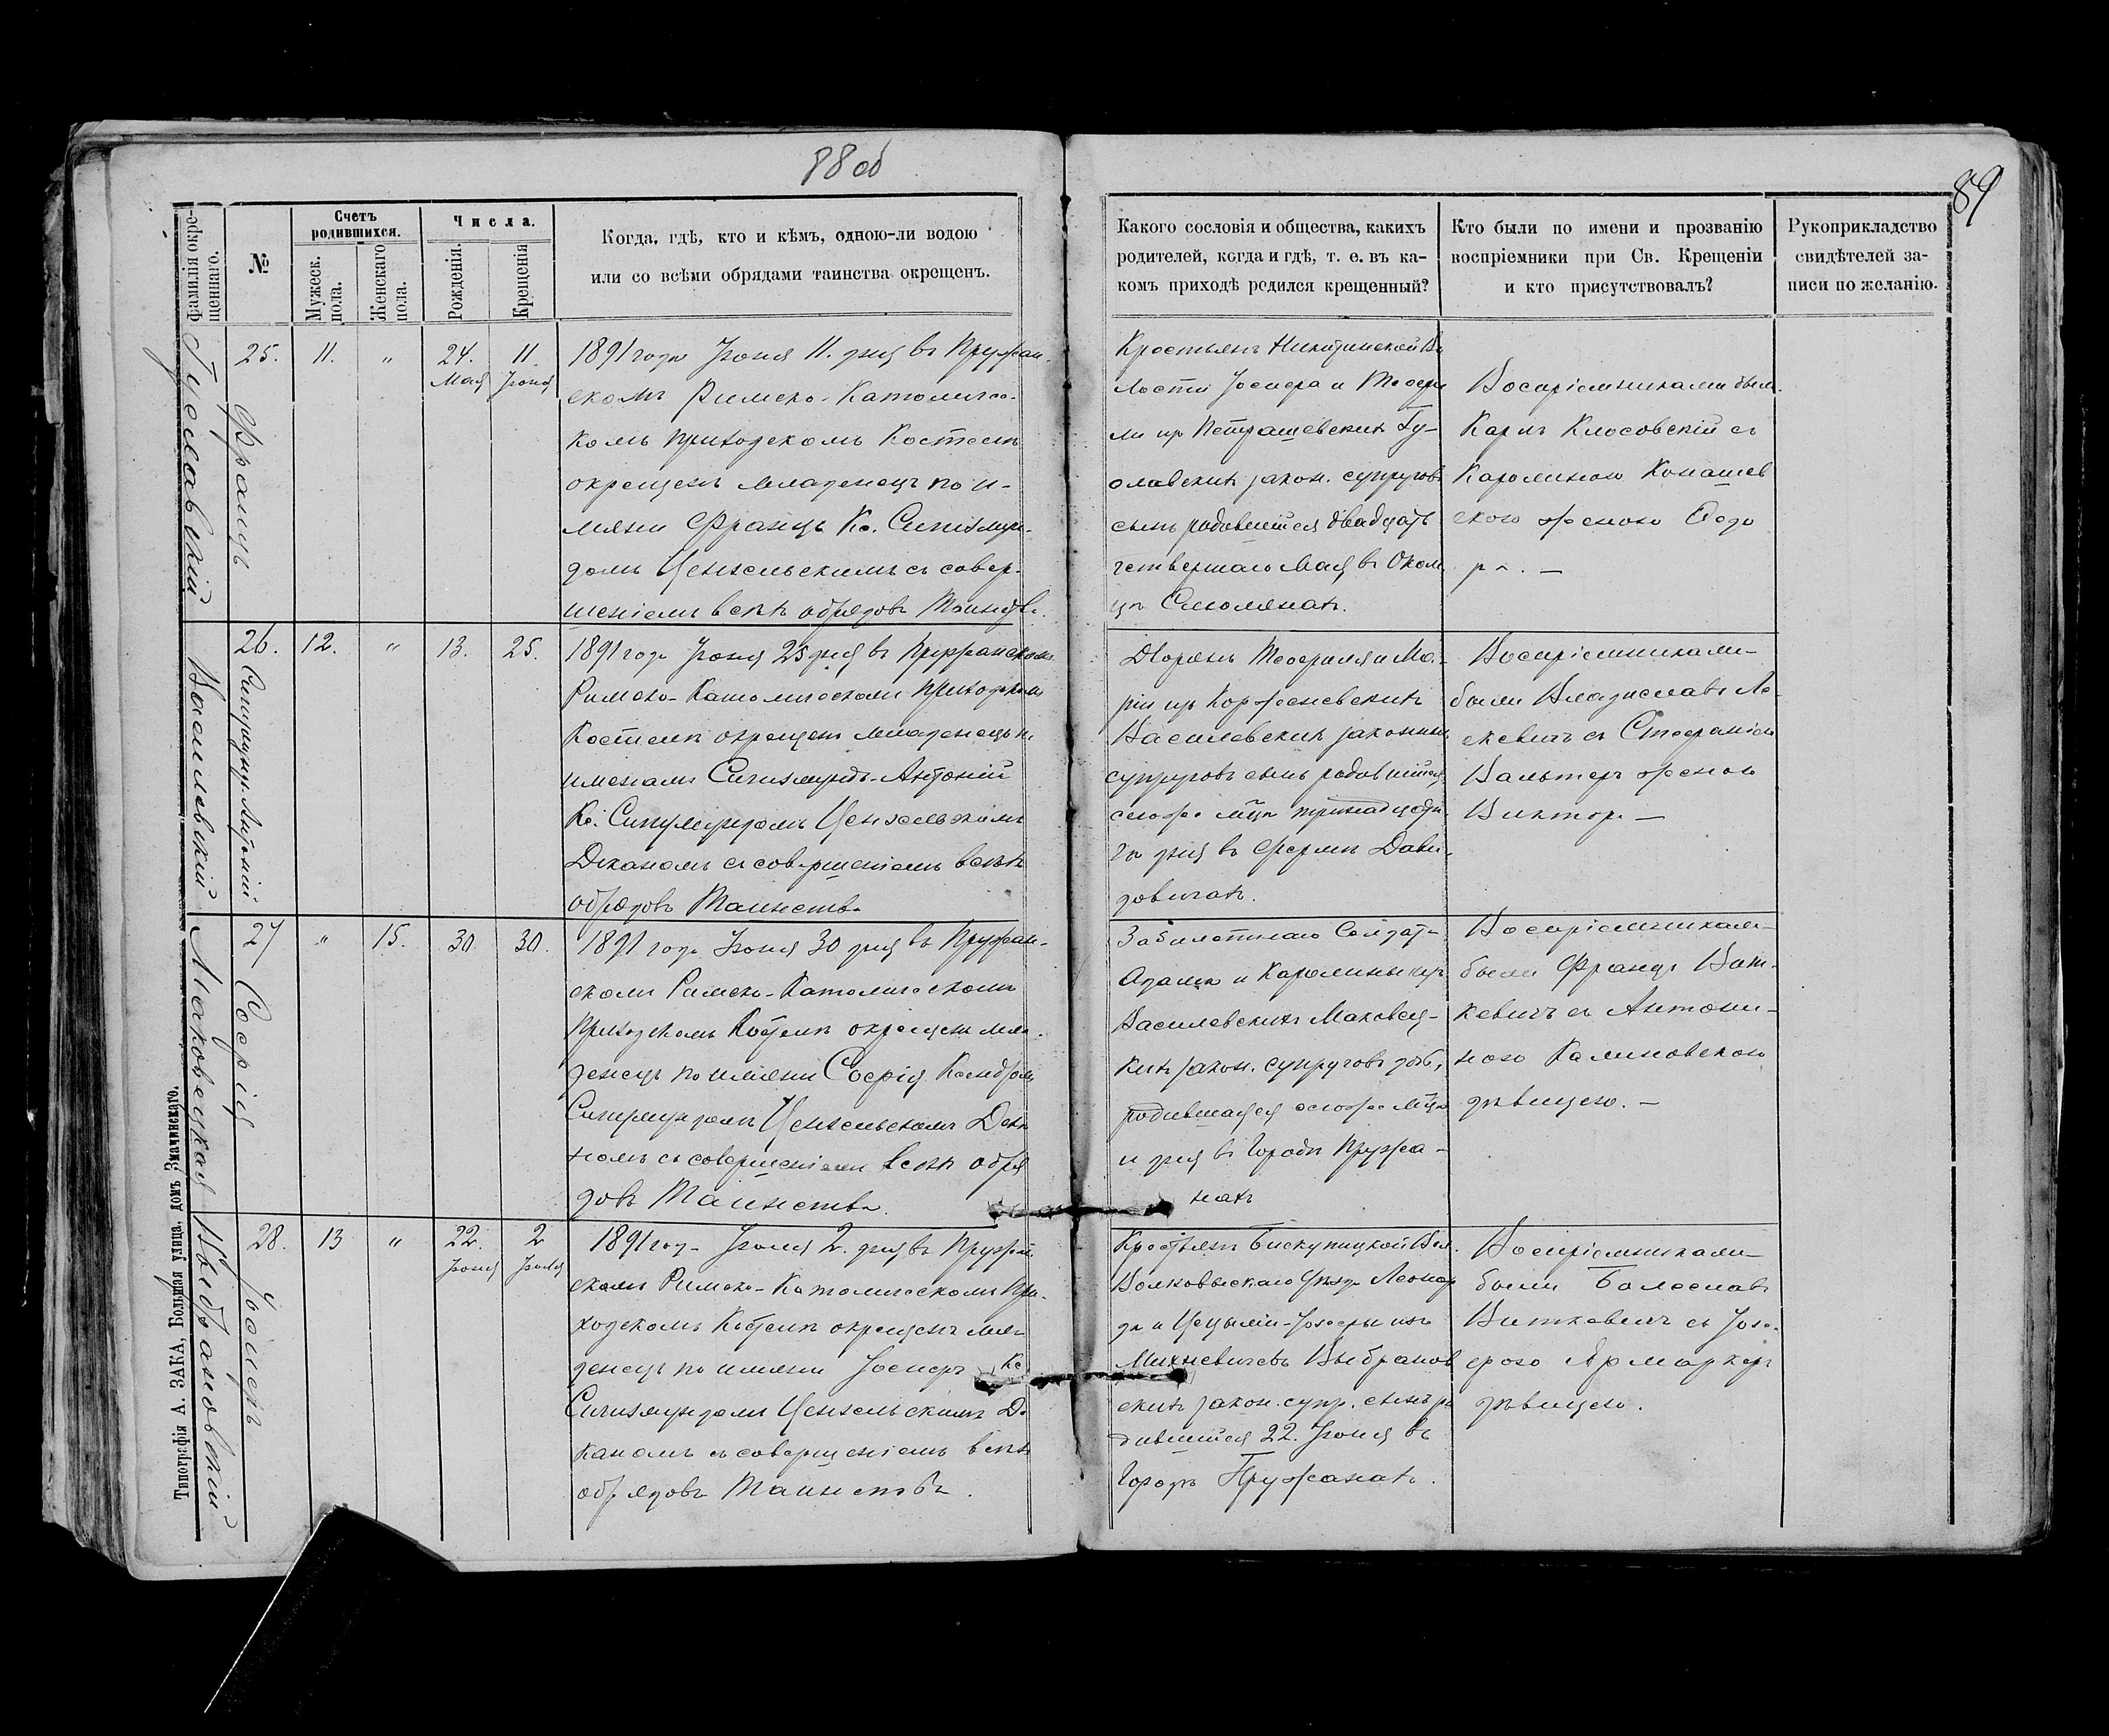 88 об
89
Фамилія окре-
щеннаго.
№
Счетъ
родившихся.
Мужеск.
пола.
Женскаго
пола.
Числа.
Рожденія.
Крещенія
Когда, гдѣ, кто и кѣмъ, одною-ли водою
или со всѣми обрядами таинства окрещенъ.
Какого сословія и общества, какихъ
родителей, когда и гдѣ, т. е. въ ка-
комъ приходѣ родился крещенный?
Кто были по имени и прозванію
воспріемники при Св. Крещеніи
и кто присутствовалъ?
Рукоприкладство
свидѣтелей за-
писи по желанію.
Гуславскій
25.
Францъ
11.
"
24.
Мая
11.
Іюня
1891 года Іюня 11. дня въ Пружан-
скомъ Римско-Католичес-
комъ приходскомъ Костелѣ
окрещенъ младенецъ по и-
мяни Францъ Кс. Сигизмун-
домъ Ценхельскимъ съ совер-
шеніемъ всѣхъ обрядовъ Таинства.
Крестьянъ
лости Іосифа и Теофи
ли изъ Петрашевскихъ Гу-
славскихъ закон. супруговъ
сынъ родившійся двадцать
четвертаго Мая въ Околи
цѣ Смолянахъ.
Воспріемниками были
Карлъ Клосовскій съ
Каролиною Конашев
скою женою Ѳедо
ра. —
Василевскій
26.
Сигизмунд-Антоній
12.
"
13.
25.
1891 года Іюня 25 дня въ Пружанскомъ
Римско-Католическомъ приходскомъ
Костелѣ окрещенъ младенецъ п.
именами Сигизмундъ-Антоній
Кс. Сигизмундомъ Ценхельскимъ
Деканомъ съ совершеніемъ всѣхъ
обрядовъ Таинства.
Дворянъ Теофиля и Ма-
ріи изъ Корженевскихъ
Василевскихъ законныхъ
супруговъ сынъ родившійся
сего же м̃ца тринадцата-
го дня въ Фермѣ Дави-
довичахъ.
Воспріемниками
были Владиславъ Ле-
скевичъ съ Стефаніею
Вальтеръ женою
Виктора —
Маковецкая
27
Софія
"
15.
30.
30.
1891 года Іюня 30 дня въ Пружан-
скомъ Римско-Католическомъ
приходскомъ Костелѣ окрещенъ мла-
денецъ по имяни Софія Ксендзомъ
Сигизмундомъ Ценхельскимъ Дека
номъ съ совершеніемъ всѣхъ обря
довъ Таинства.
Забилетнаго Солдата
Адама и Каролины изъ
Василевскихъ Маковец-
кихъ закон. супруговъ дочь,
родившаяся сего же м̃ца
и дня въ Городѣ Пружа-
нахъ
Воспріемниками
были Францъ Вит-
кевичъ съ Антони-
ною Калиновскою
дѣвицею. —
Выбрановскій
28.
Іосифъ
13
"
22.
Іюня
2
Іюля
1891 года Іюля 2. дня въ Пружан
скомъ Римско-Католическомъ При-
ходскомъ Костелѣ окрещенъ мла-
денецъ по имяни Іосифъ Кс.
Сигизмундомъ Ценхельскимъ Де
каномъ съ совершеніемъ всѣхъ
обрядовъ Таинства.
Крестьянъ Бискупицкой Вол.
Волковыскаго Уѣзда Леонар
да и Цецыліи-Іозефы изъ
Михневичевъ Выбранов
скихъ закон. супр. сынъ ро
дившійся 22. Іюня въ
Городѣ Пружанахъ.
Воспріемниками
были Болеславъ
Виткевичъ съ Іозе-
фою Ярмаркер
дѣвицею.
Типографія А. ЗАКА, Большая улица, домъ Значинскаго.